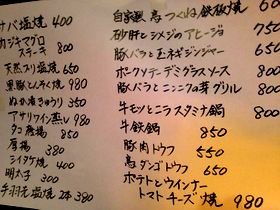 サバ塩焼 400
カジキマグロステーキ 800
天然ブリ塩焼 650
黒豚とんろく焼 980
ぬか漬きゅうり 350
アサリワイン蒸し 980
タコ唐揚 850
厚揚 380
シイタケ焼 400
明太子 300
手羽元塩焼 2本 380
自家製 鳥つくね鉄板焼 60
砂肝とシメジのアヒージョ 750
豚バラと玉ネギジンジャー 650
ポークソテーデミグラスソース 800
豚バラとニンニクの芽グリル 800
牛モツとニラスタミナ鍋 800
牛鉄鍋 850
豚肉ドウフ 550
鳥ダンゴドウフ 650
ポテトとウインナー
トマトチーズ焼 980